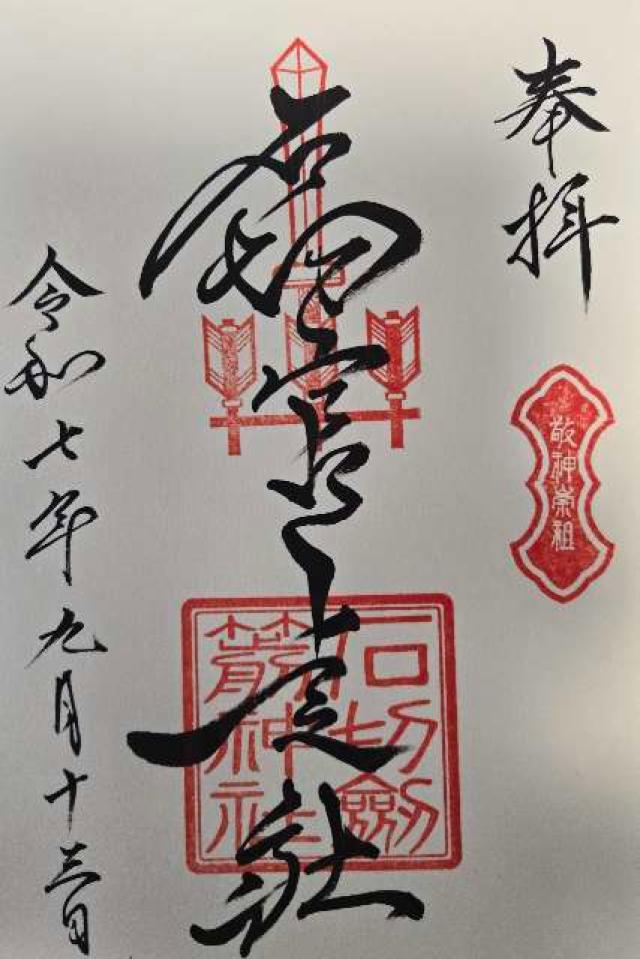 奉拝
敬神崇祖
石切宮上之社
石切劔
箭神社
令和七年九月十三日